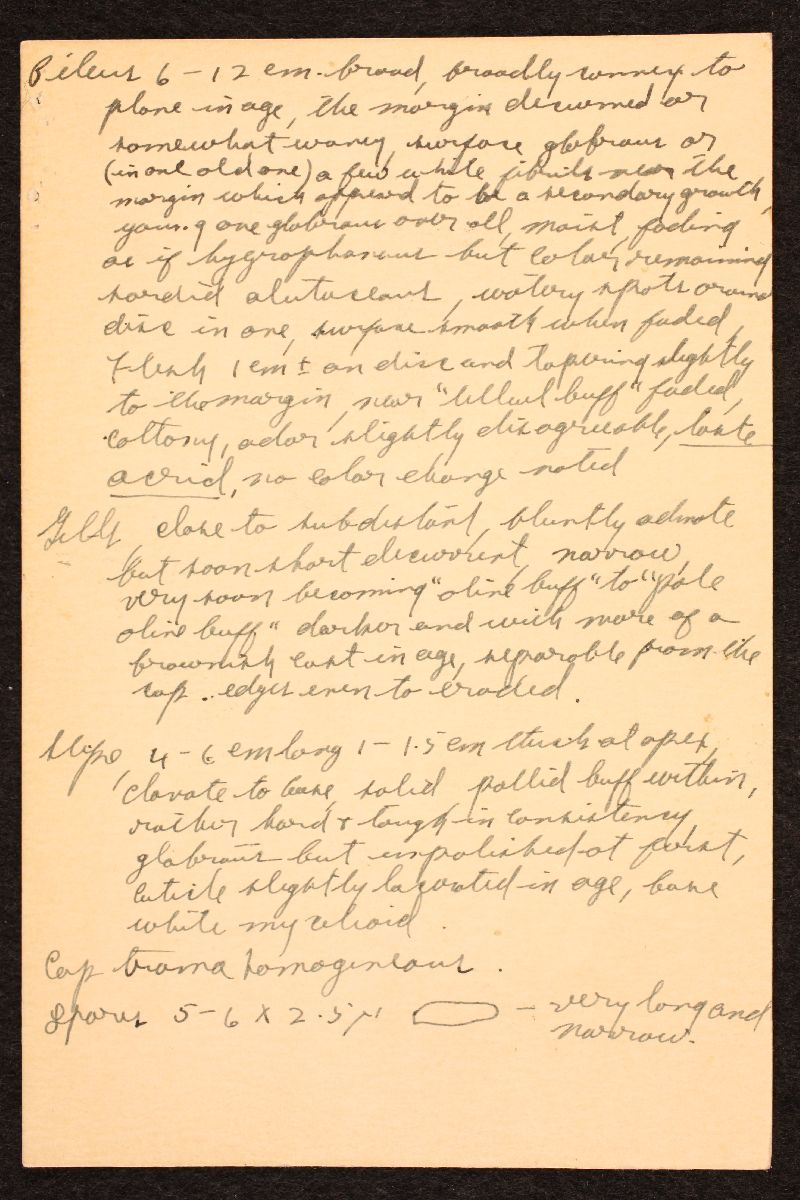 Pileus 6 – 12 cm. broad, broadly convex to
plane in age, the margin decurved or
somewhat wavey, surface glabrous or
(in one old one) a few white fibrils near the
margin which appeared to be a secondary growth,
young one glabrous over all, moist, fading
as if hygrophanous but color remaining
sordid alutaceous, watery spots around
disc in one, surface smooth when faded,
Flesh 1 cm ± on disc and tapering slightly
to the margin, near "tilleul buff" faded,
cottony, odor slightly disagreeable, taste
acrid, no color change noted
Gills close to subdistant, bluntly adnate
but soon short decurrent, narrow,
very soon becoming "olive buff" to "pale
olive buff" darker and with more of a
brownish cast in age, separable from the
cap. edges even to eroded.
Stipe, 4 – 6 cm long 1 – 1.5 cm thick at apex,
clavate to base, solid pallid buff within,
rather hard & tough in consistency,
glabrous but unpolished at first,
cuticle slightly lacerated in age, base
white mycelioid.
Cap trama homogineous.
Spores 5 – 6 X 2.5 µ – very long and
narrow.